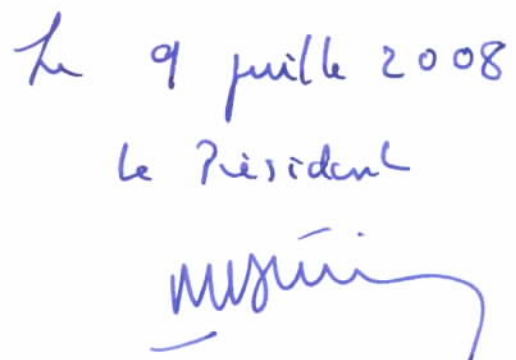 Le 9 juille 2008
le Président